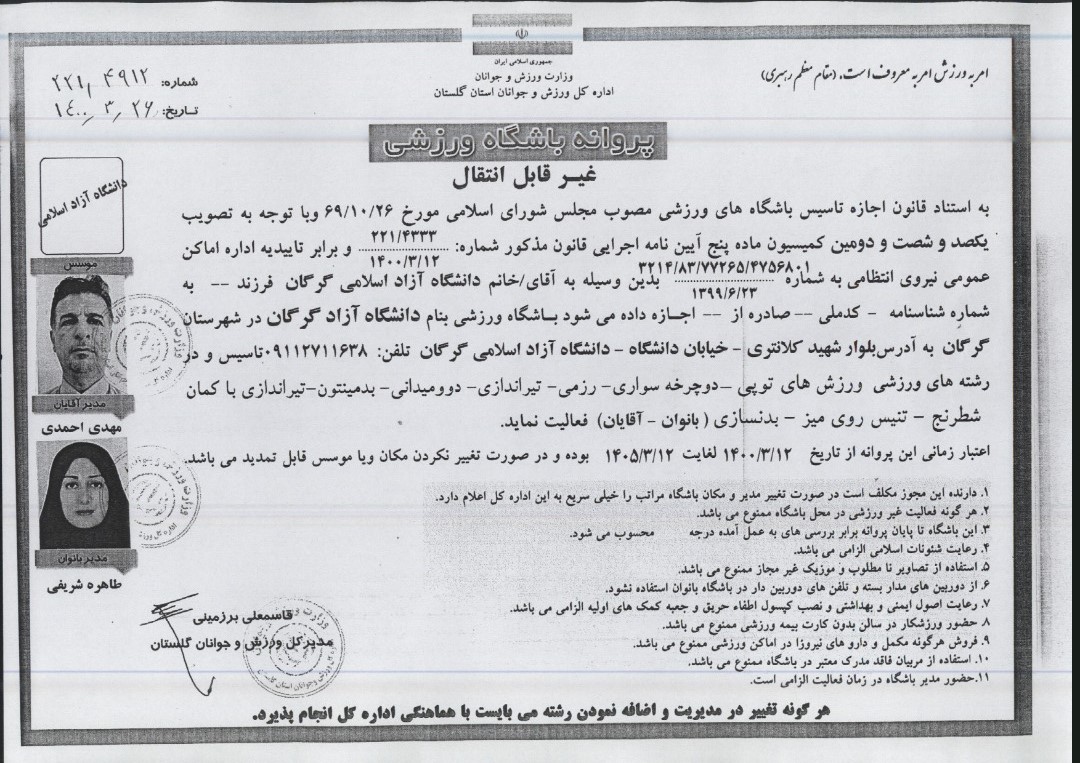 جمهوری اسلامی ایران
وزارت ورزش و جوانان
اداره کل ورزش و جوانان استان گلستان
امر به ورزش امر به معروف است. (مقام معظم رهبری)
شماره: ۲۲۱/۴۹۱۲
تاریخ: ۱۴۰۰/۳/۲۶
پروانه باشگاه ورزشی
غیر قابل انتقال
به استناد قانون اجازه تاسیس باشگاه های ورزشی مصوب مجلس شورای اسلامی مورخ ۶۹/۱۰/۲۶ وبا توجه به تصویب
یکصد و شصت و دومین کمیسیون ماده پنج آیین نامه اجرایی قانون مذکور شماره: ۲۲۱/۴۳۳۳ ۱۴۰۰/۳/۱۲ و برابر تاییدیه اداره اماکن
عمومی نیروی انتظامی به شماره ۳۲۱۴/۸۳/۷۷۲۶۵/۴۷۵۶۸۰۱ ۱۳۹۹/۶/۲۳ بدین وسیله به آقای/خانم دانشگاه آزاد اسلامی گرگان فرزند -- به
شماره شناسنامه - کدملی -- صادره از -- اجازه داده می شود باشگاه ورزشی بنام دانشگاه آزاد گرگان در شهرستان
گرگان به آدرس بلوار شهید کلانتری - خیابان دانشگاه - دانشگاه آزاد اسلامی گرگان تلفن: ۰۹۱۱۲۷۱۱۶۳۸ تاسیس و در
رشته های ورزشی ورزش های توپی -دوچرخه سواری- رزمی- تیراندازی- دوومیدانی- بدمینتون-تیراندازی با کمان
شطرنج - تنیس روی میز - بدنسازی ( بانوان - آقایان) فعالیت نماید.
اعتبار زمانی این پروانه از تاریخ ۱۴۰۰/۳/۱۲ لغایت ۱۴۰۵/۳/۱۲ بوده و در صورت تغییر نکردن مکان ویا موسس قابل تمدید می باشد.
۱. دارنده این مجوز مکلف است در صورت تغییر مدیر و مکان باشگاه مراتب را خیلی سریع به این اداره کل اعلام دارد.
۲. هر گونه فعالیت غیر ورزشی در محل باشگاه ممنوع می باشد.
۳. این باشگاه تا پایان پروانه برابر بررسی های به عمل آمده درجه محسوب می شود.
۴. رعایت شئونات اسلامی الزامی می باشد.
۵. استفاده از تصاویر نا مطلوب و موزیک غیر مجاز ممنوع می باشد.
۶. از دوربین های مدار بسته و تلفن های دوربین دار در باشگاه بانوان استفاده نشود.
۷. رعایت اصول ایمنی و بهداشتی و نصب کپسول اطفاء حریق و جعبه کمک های اولیه الزامی می باشد.
۸. حضور ورزشکار در سالن بدون کارت بیمه ورزشی ممنوع می باشد.
۹. فروش هرگونه مکمل و دارو های نیروزا در اماکن ورزشی ممنوع می باشد.
۱۰. استفاده از مربیان فاقد مدرک معتبر در باشگاه ممنوع می باشد.
۱۱.حضور مدیر باشگاه در زمان فعالیت الزامی است.
هر گونه تغییر در مدیریت و اضافه نمودن رشته می بایست با هماهنگی اداره کل انجام پذیرد.
دانشگاه آزاد اسلامی
موسس
مدیر آقایان
مهدی احمدی
مدیر بانوان
طاهره شریفی
قاسمعلی برزمینی
مدیر کل ورزش و جوانان گلستان